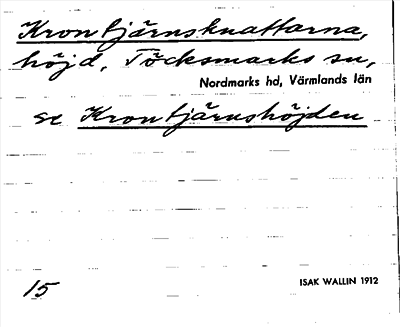 Krontjärnsknattarna,
höjd, Töcksmarks sn,
Nordmarks hd, Värmlands län
se Krontjärnshöjden
15
ISAK WALLIN 1912